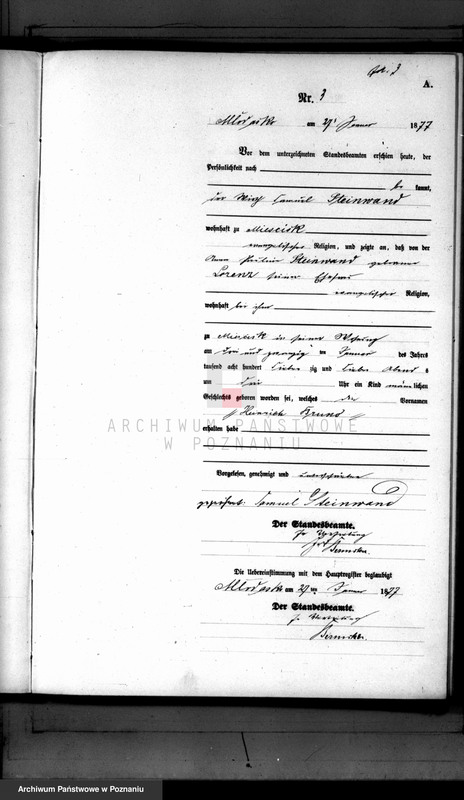 A.
Nr. 3
am 27 Januar 1877
Vor dem unterzeichneten Standesbeamten erschien heute, der
Persönlichkeit nach
be kannt,
der Wirth Samuel Steinwand
wohnhaft zu Miescisk
evangelischer Religion, und zeigte an, daß von der
Steinwand geborene
Lorenz seiner Ehefrau
evangelischer Religion,
wohnhaft bei ihm
zu Miescisk in seiner Wohnung
am drei und zwanzig ten Januar des Jahres
tausend acht hundert sieben zig und sieben Abend s
um drei Uhr ein Kind männlichen
Geschlechts geboren worden sei, welches den Vornamen
Heinrich Bruno
erhalten habe
Vorgelesen, genehmigt und unterschrieben
Samuel Steinwand
Der Standesbeamte.
In Vertretung
Die Uebereinstimmung mit dem Hauptregister beglaubigt
am 27 ten Januar 1877
Der Standesbeamte.
In Vertretung
ARCHIWUM PAŃSTWOWE
W POZNANIU
Archiwum Państwowe w Poznaniu